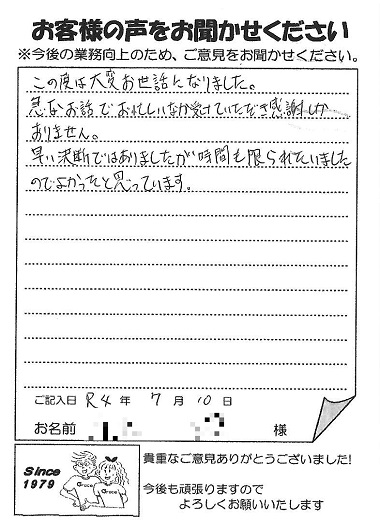 お客様の声をお聞かせください
※今後の業務向上のため、ご意見をお聞かせください。
この度は大変お世話になりました。
急なお話でお忙しいなか受けていただき感謝しか
ありません。
早い決断ではありましたが時間も限られていました
のでよかったと思っています。
ご記入日 R4年 7月 10日
お名前 様
Since
1979
Grace
Grace
貴重なご意見ありがとうございました!
今後も頑張りますので
よろしくお願いいたします